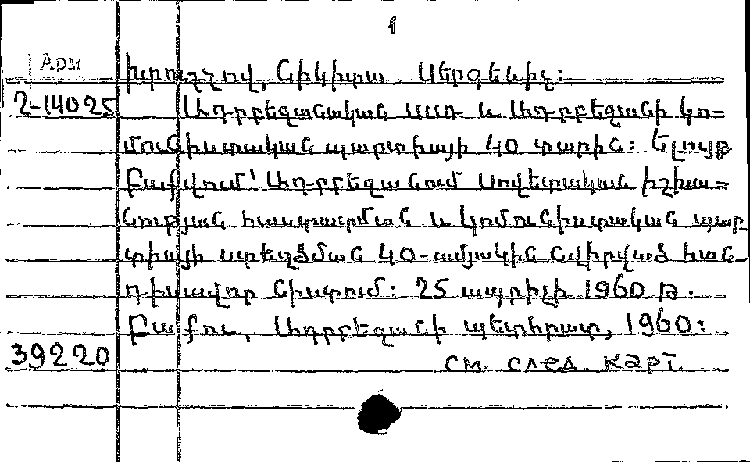 1
Арм
Խրուշչով, Նիկիտա Սերգեևիչ:
2-14025 Ադրբեջանական ՍՍՌ և Ադրբեջանի կո-
մունիստական պարտիայի 40 տարին: Ելույթ
Բաքվում՝ Ադրբեջանում Սովետական իշխա-
նության հաստատման և կոմունիստական պար
տիայի ստեղծման 40-ամյակին նվիրված հան-
դիսավոր նիստում: 25 ապրիլի 1960 թ.
Բաքու, Ադրբեջանի պետհրատ, 1960:
39220 см. след. карт.